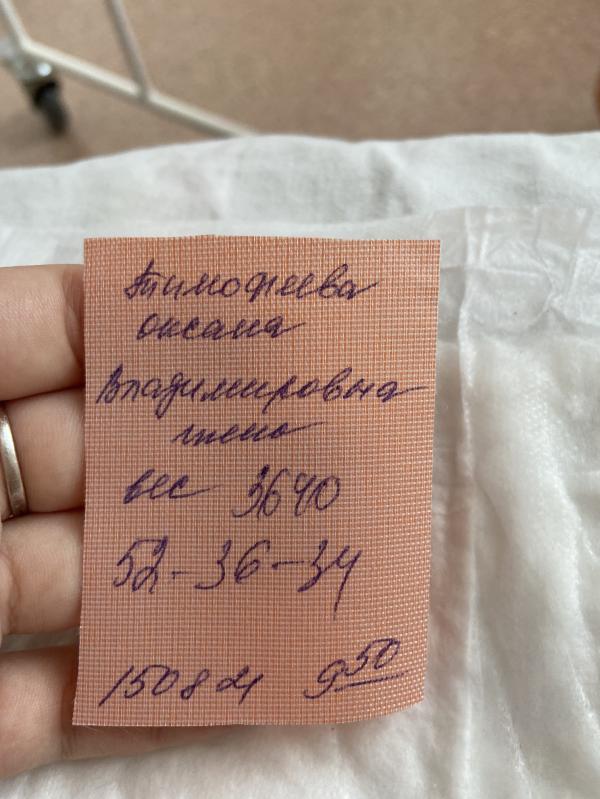 Тимофеева
Оксана
Владимировна
вес 3640
52-36-34
150821 9 50